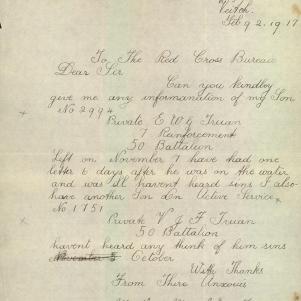 Feb 9 2.1917
To The Red Cross Bureau
Dear Sir
Can you kindley
give me any informanation of my Son
x No 2994
Private E W G Truan
7 Reinforcement
50 Battalion
Left on November 7 have had one
letter 6 days after he was on the water
and was ill havent heard sins I also
have another Son On Active Service
x No 1751
Private W J F Truan
50 Battalion
havent heard any think of him sins
October
With Thanks
From There Anxous